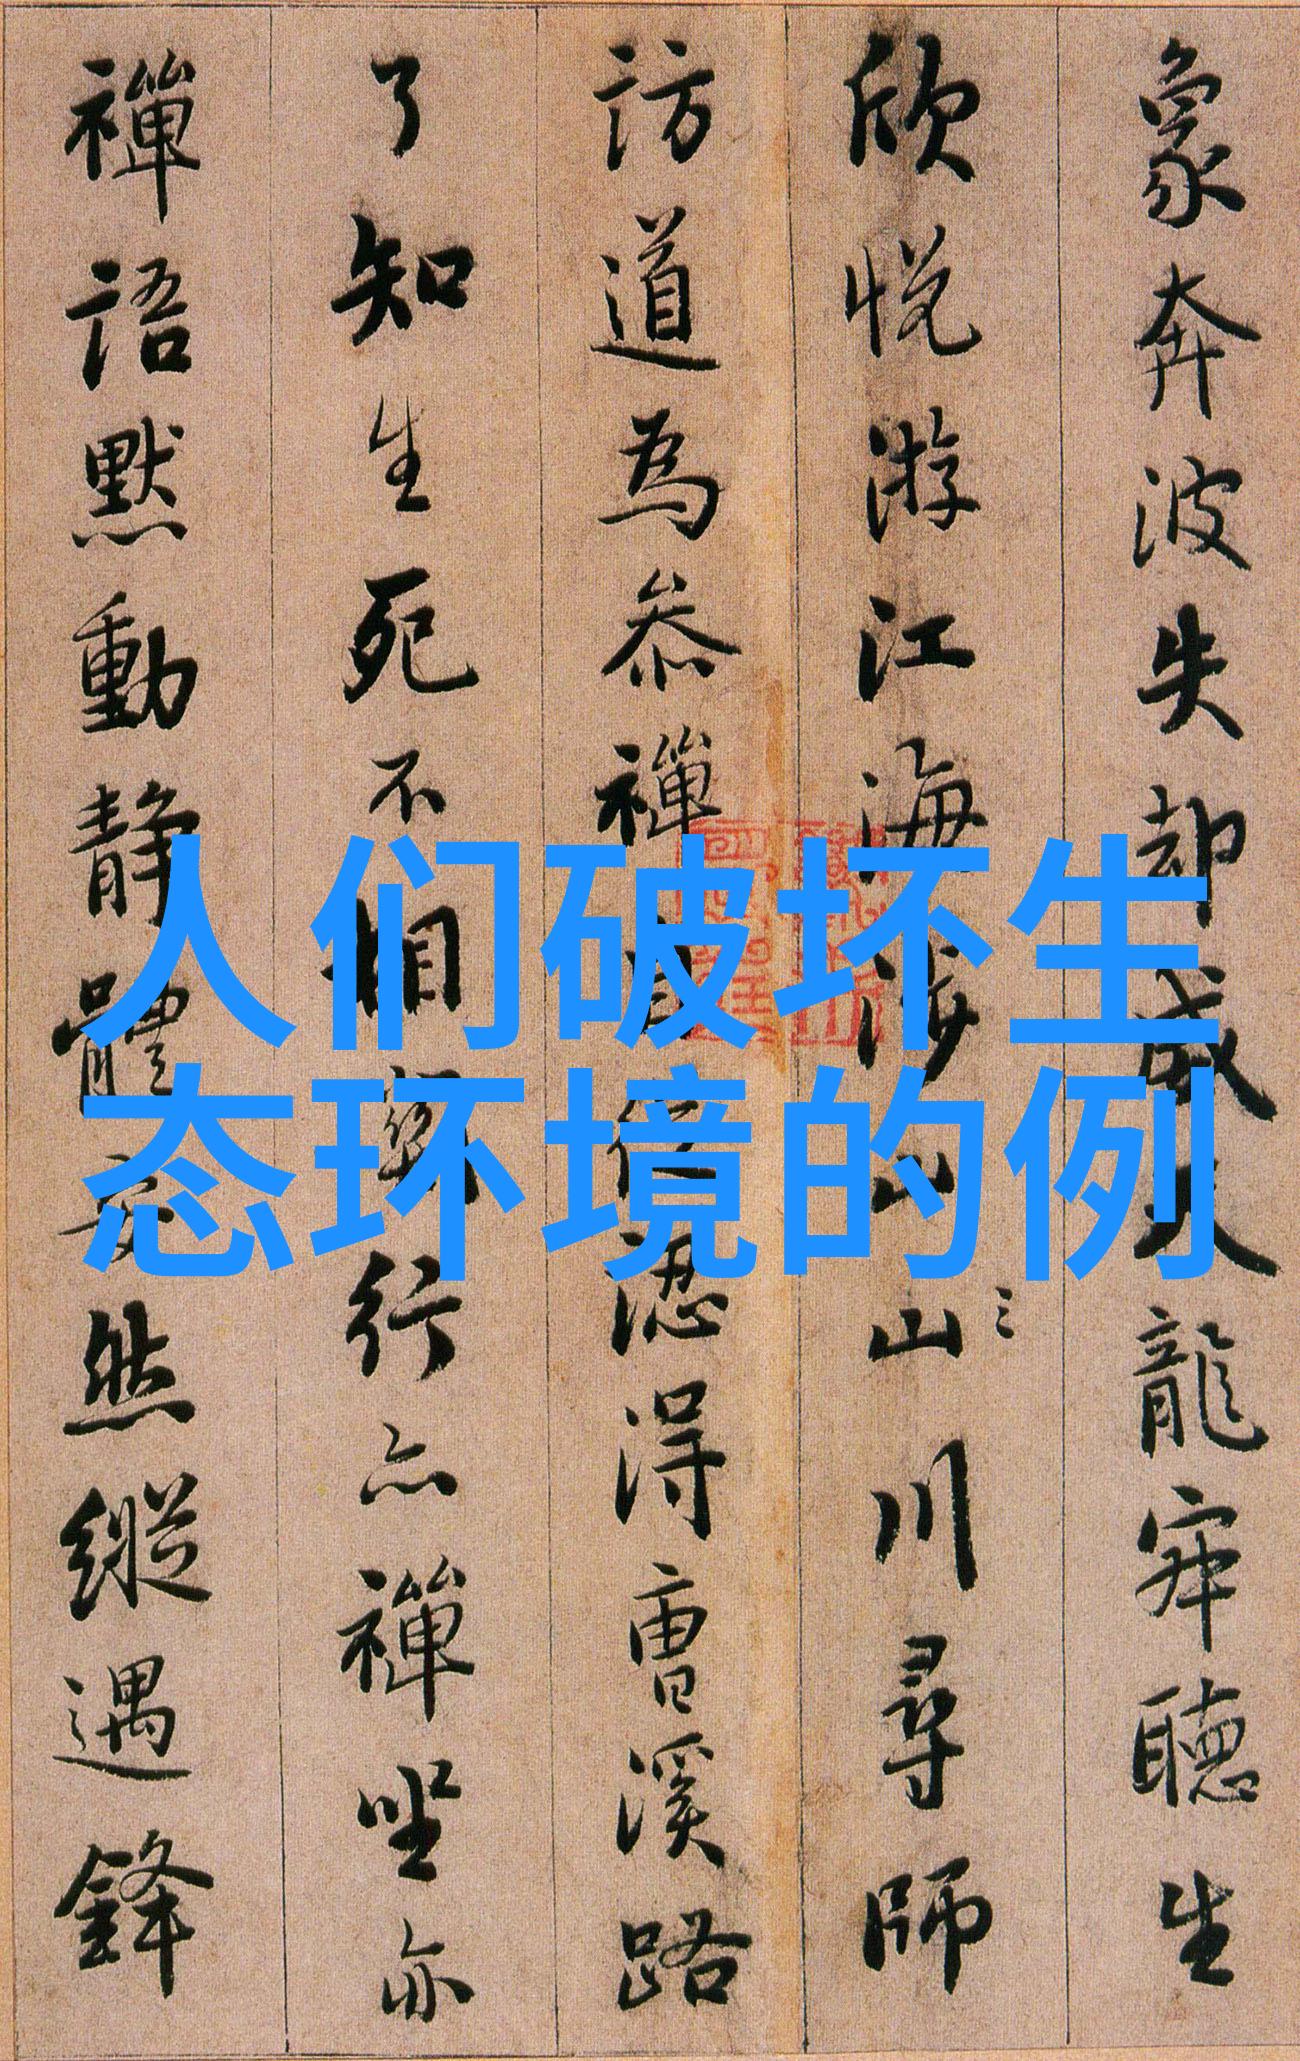 象奔波失却威天龍寂聽生
欣悦游江海涉山川尋師
訪道為參禪自從認得曹溪路
了知生死不相關行亦禪坐亦
禪語默動靜體安然縱遇鋒
人们破坏生
态环境的例